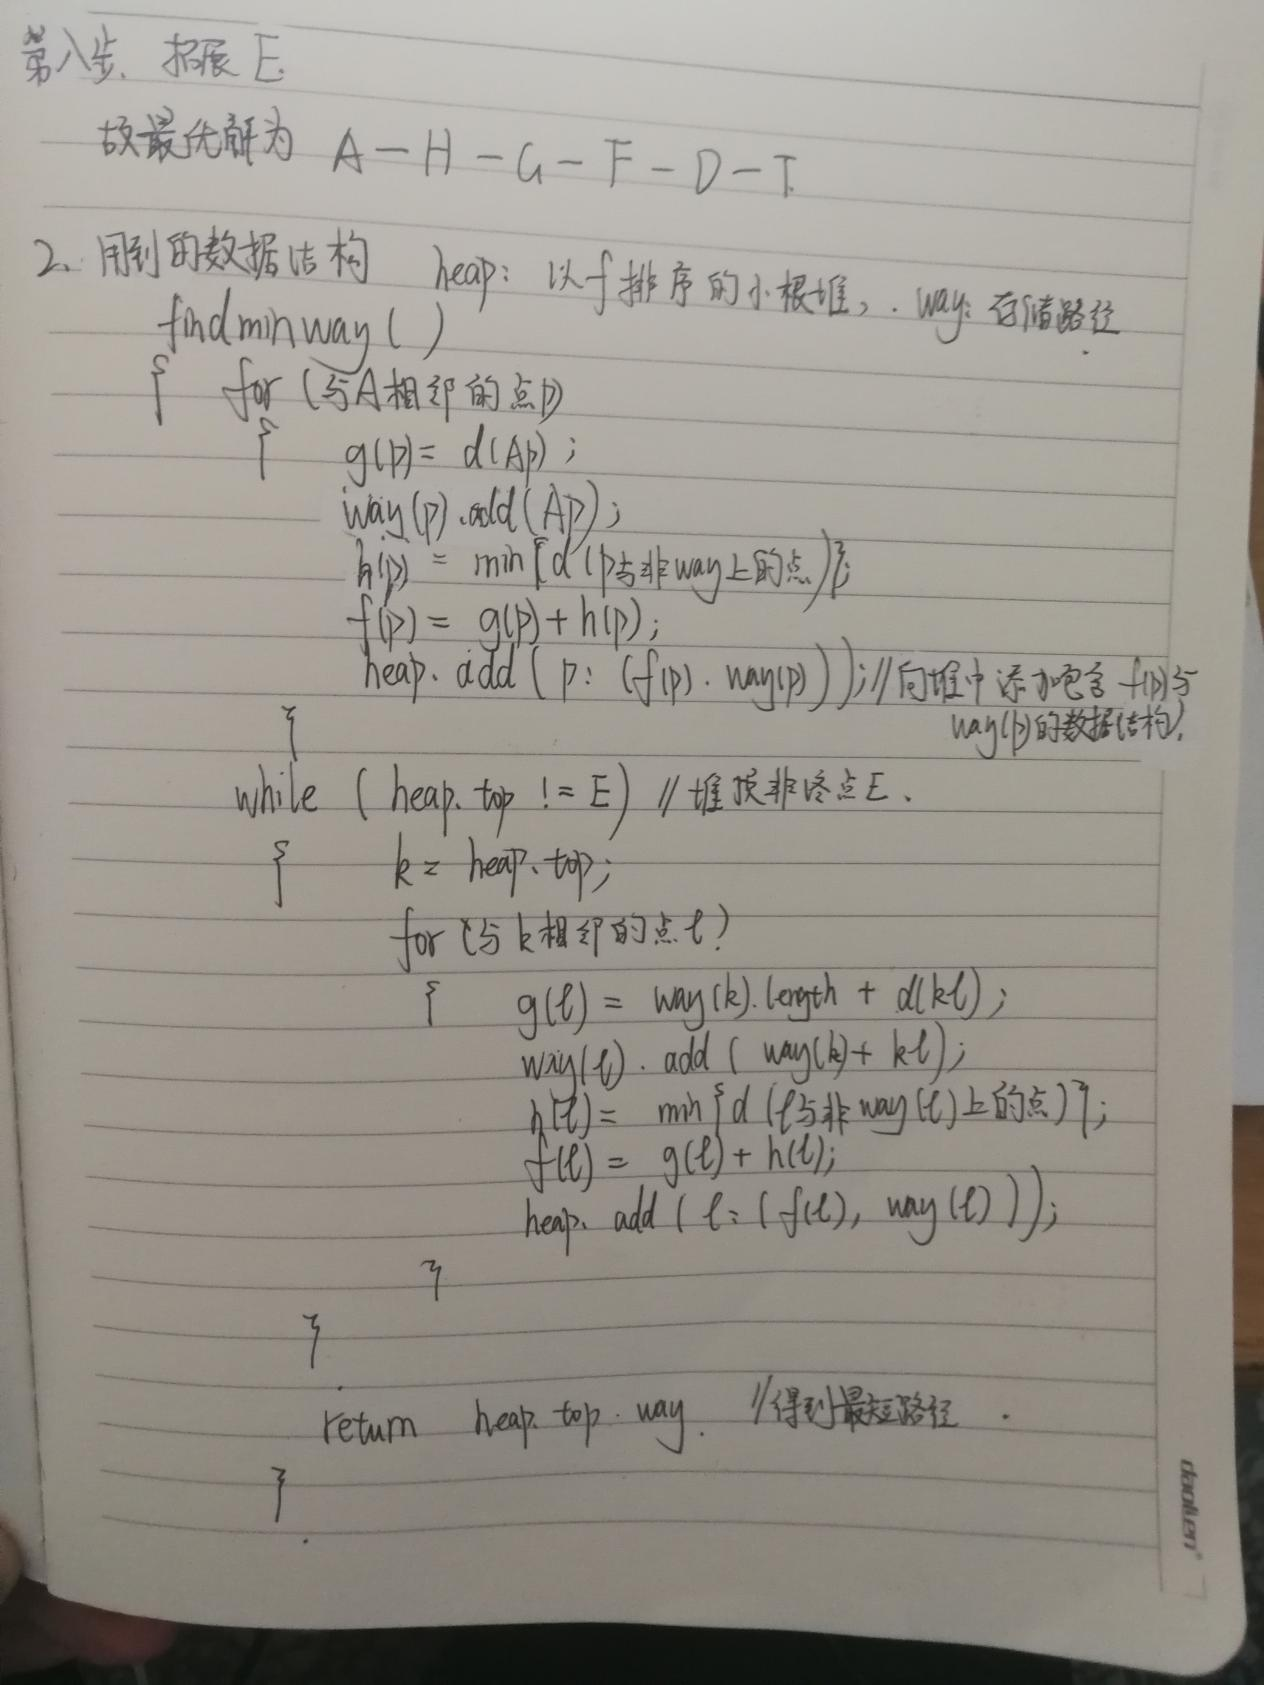 第八步. 拓展 E.
故最优解为 A-H-G-F-D-T.
2、用到的数据结构 heap: 以f排序的小根堆, . way: 存储路径
findminway( )
{ for (与A相邻的点p)
{ g(p)= d(Ap);
way(p).add(Ap);
h(p) = min{d(p与非way上的点)};
f(p) = g(p)+h(p);
heap.add(p: (f(p). way(p))); //向堆中添加包含 f(p)与
way(p)的数据结构.
}
while (heap.top != E) //堆顶非终点E.
{ k = heap.top;
for (与k相邻的点l)
{ g(l) = way(k).length + d(kl);
way(l).add(way(k)+kl);
h(l)= min{d(l与非way(l)上的点)};
f(l) = g(l)+h(l);
heap.add(l:(f(l), way(l)));
}
}
return heap.top.way. //得到最短路径.
}
daolven